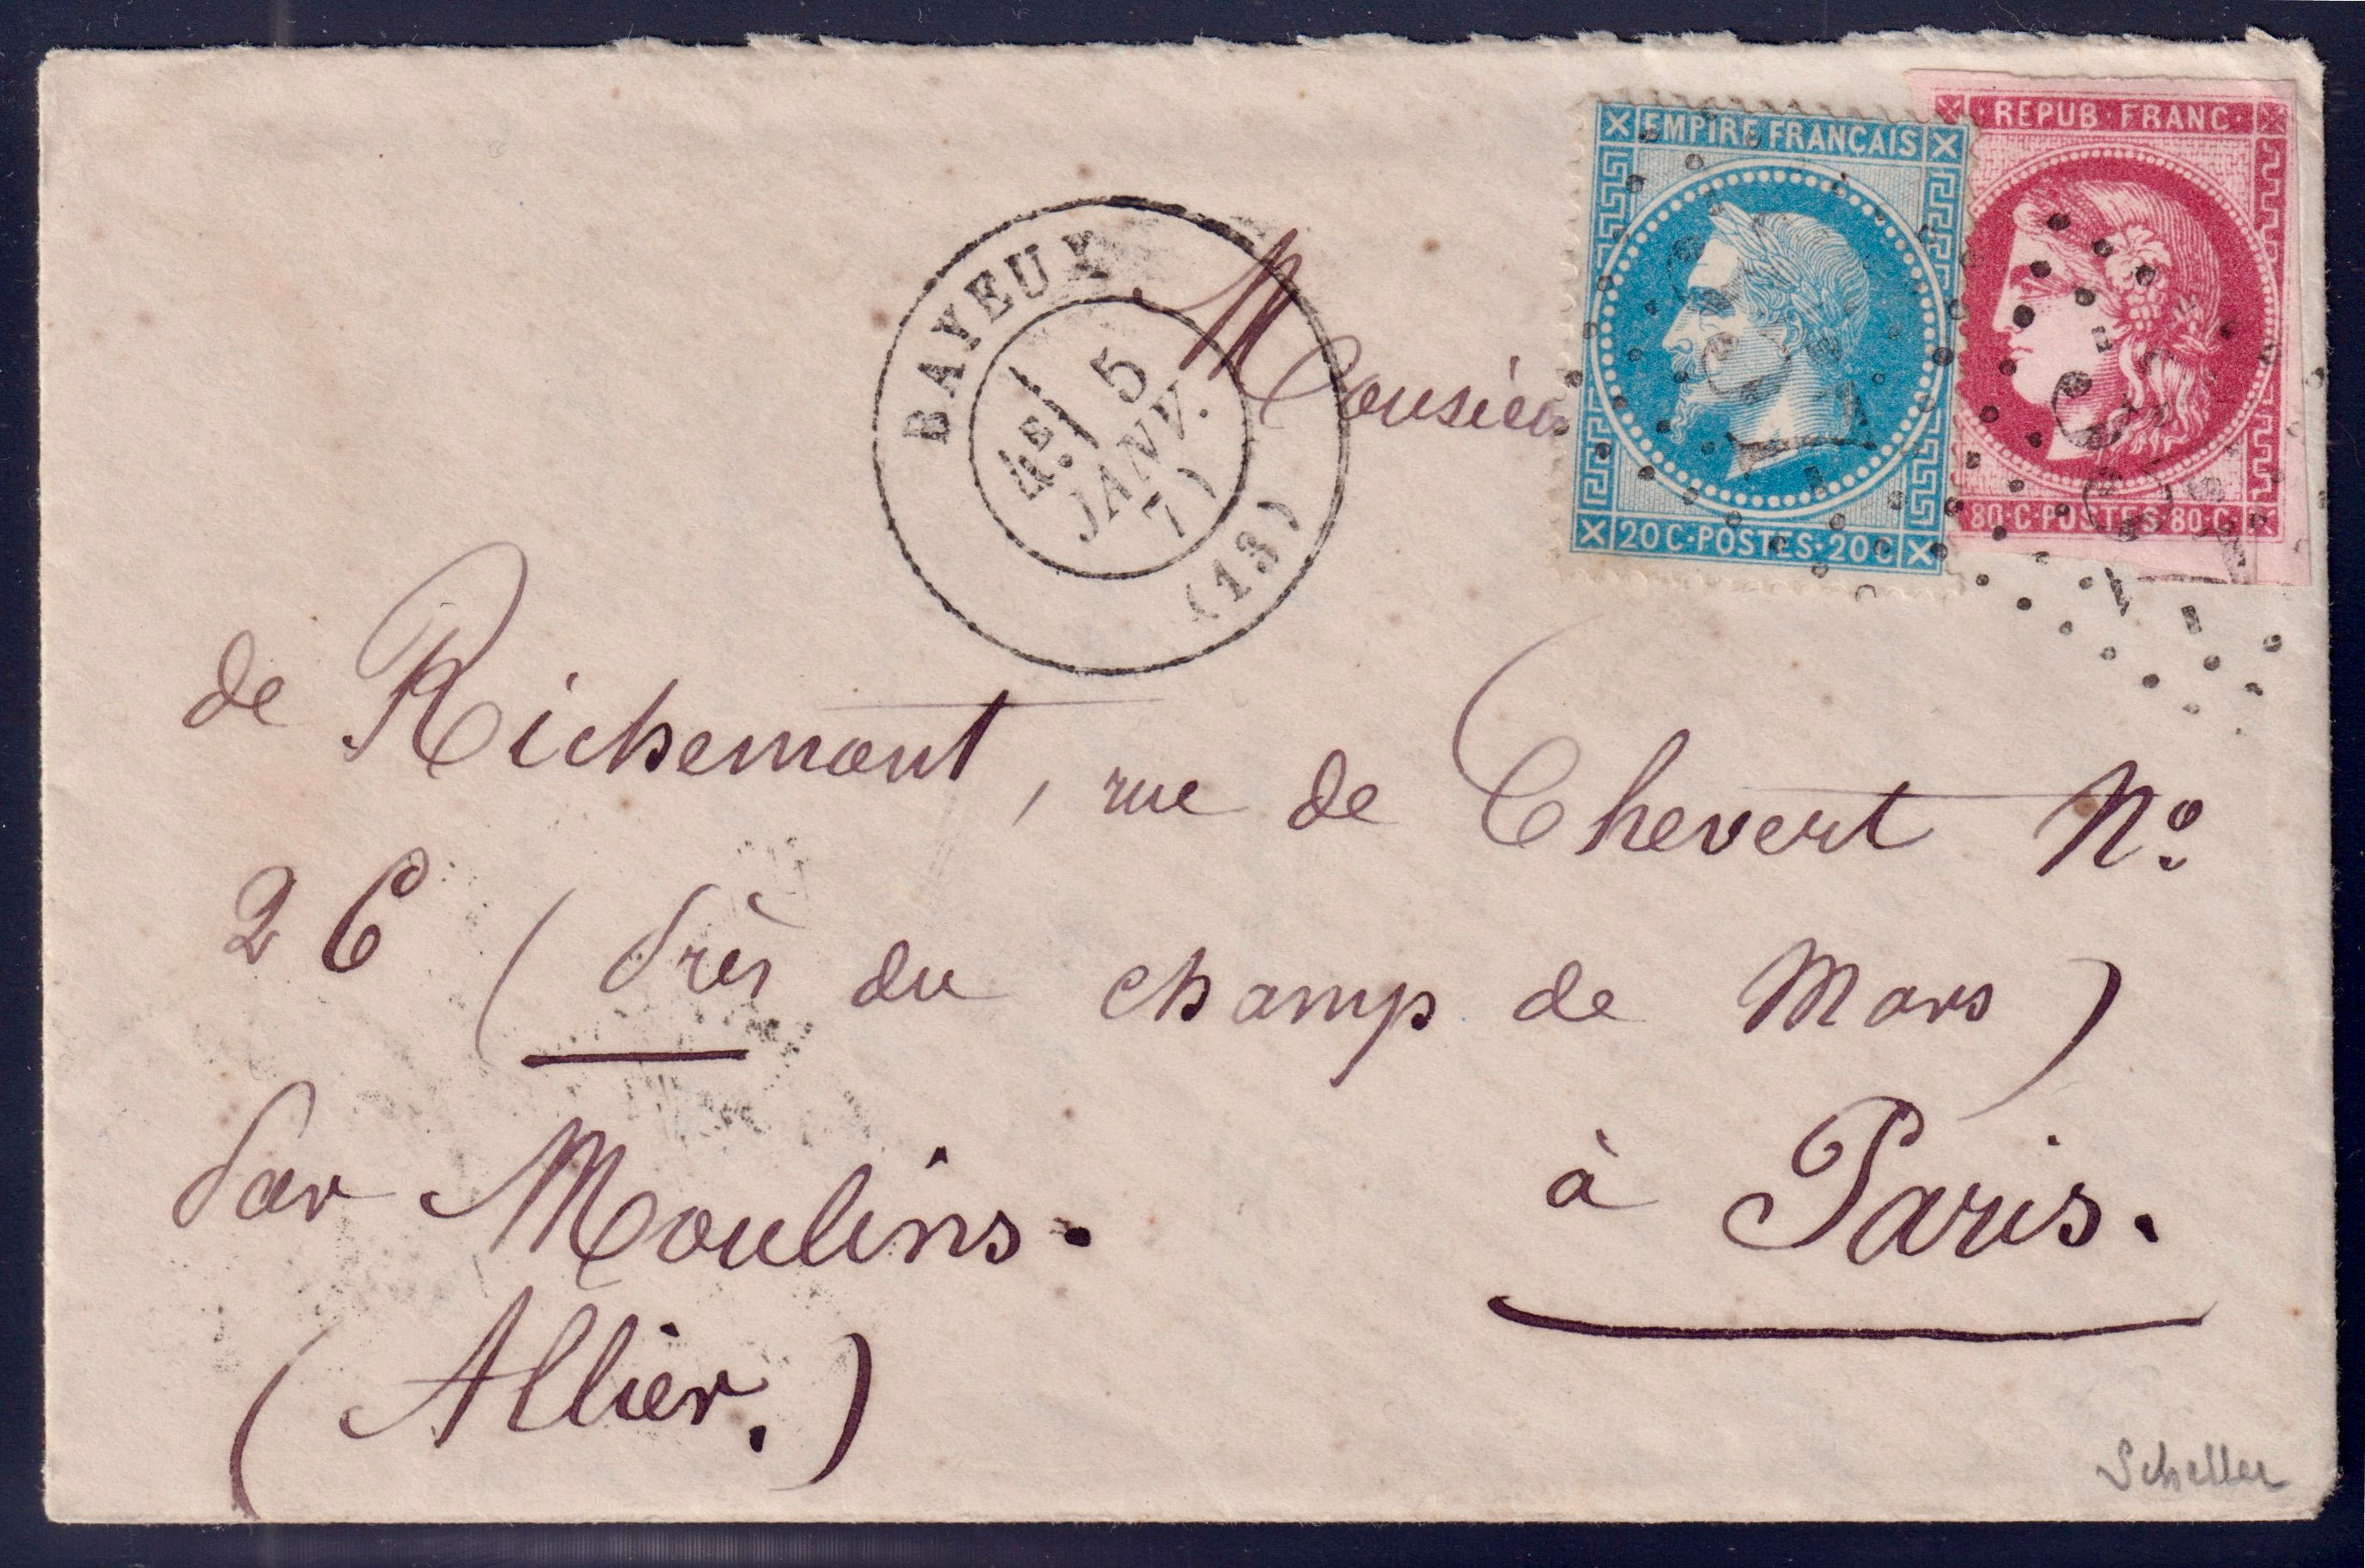 EMPIRE FRANÇAIS
20 C·POSTES·20 C
·REPUB·FRANC·
80·C·POSTES·80·C
BAYEUX
4E
5
JANV.
71
(13)
Monsieur
de Richemont, rue de Chevert No
26 (près du champ de Mars)
par Moulins.
(Allier.)
à Paris.
Scheller